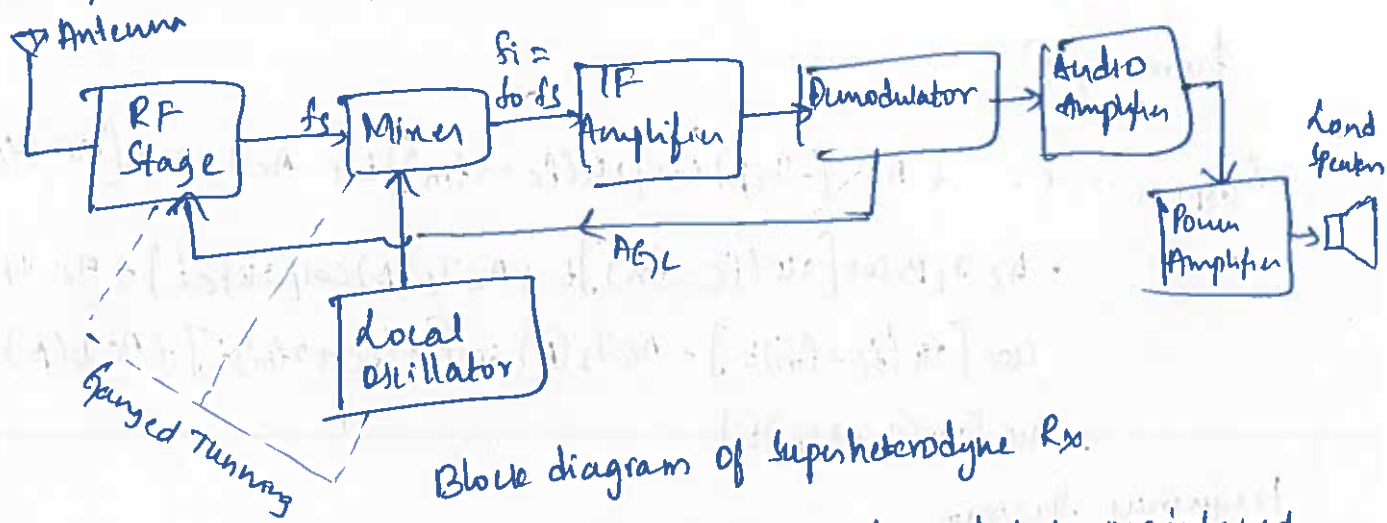 Antenna
RF
Stage
fs
Mixer
fi =
fo-fs
IF
Amplifier
Dumodulator
Audio
Amplifier
Loud
Speaker
Power
Amplifier
AGC
Local
Oscillator
Ganged Tunning
Block diagram of Superheterodyne Rx.